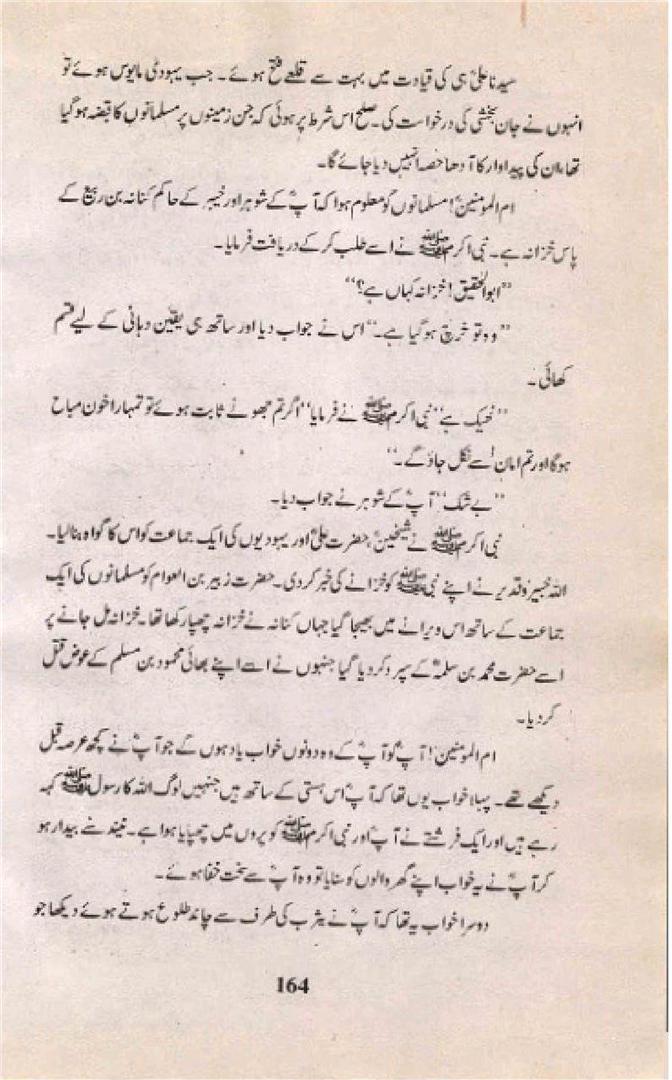 سیدنا علیؓ ہی کی قیادت میں بہت سے قلعے فتح ہوئے۔ جب یہودی مایوس ہوئے تو
انہوں نے جان بخشی کی درخواست کی۔ صلح اس شرط پر ہوئی کہ جن زمینوں پر مسلمانوں کا قبضہ ہو گیا
تھا، ان کی پیداوار کا آدھا حصہ انہیں دیا جائے گا۔
ام المومنینؓ! مسلمانوں کو معلوم ہوا کہ آپؓ کے شوہر اور خیبر کے حاکم کنانہ بن ربیع کے
پاس خزانہ ہے۔ نبی اکرم ﷺ نے اسے طلب کر کے دریافت فرمایا۔
”ابو الحقیق! خزانہ کہاں ہے؟“
”وہ تو خرچ ہو گیا ہے۔“ اس نے جواب دیا اور ساتھ ہی یقین دہانی کے لیے قسم
کھائی۔
”ٹھیک ہے“ نبی اکرم ﷺ نے فرمایا ”اگر تم جھوٹے ثابت ہوئے تو تمہارا خون مباح
ہو گا اور تم امان سے نکل جاؤ گے۔“
”بے شک“ آپؓ کے شوہر نے جواب دیا۔
نبی اکرم ﷺ نے شیخینؓ، حضرت علیؓ اور یہودیوں کی ایک جماعت کو اس کا گواہ بنا لیا۔
اللہ خبیر و قدیر نے اپنے نبی ﷺ کو خزانے کی خبر کر دی۔ حضرت زبیر بن العوام کو مسلمانوں کی ایک
جماعت کے ساتھ اس ویرانے میں بھیجا گیا جہاں کنانہ نے خزانہ چھپا رکھا تھا۔ خزانہ مل جانے پر
اسے حضرت محمد بن سلمہؓ کے سپرد کر دیا گیا جنہوں نے اسے اپنے بھائی محمود بن مسلم کے عوض قتل
کر دیا۔
ام المومنین! آپؓ کو آپؓ کے وہ دونوں خواب یاد ہوں گے جو آپؓ نے کچھ عرصہ قبل
دیکھے تھے۔ پہلا خواب یوں تھا کہ آپؓ اس ہستی کے ساتھ ہیں جنہیں لوگ اللہ کا رسول ﷺ کہہ
رہے ہیں اور ایک فرشتے نے آپؓ اور نبی اکرم ﷺ کو پروں میں چھپایا ہوا ہے۔ نیند سے بیدار ہو
کر آپؓ نے یہ خواب اپنے گھر والوں کو سنایا تو وہ آپؓ سے سخت خفا ہوئے۔
دوسرا خواب یہ تھا کہ آپؓ نے یثرب کی طرف سے چاند طلوع ہوتے ہوئے دیکھا جو
164